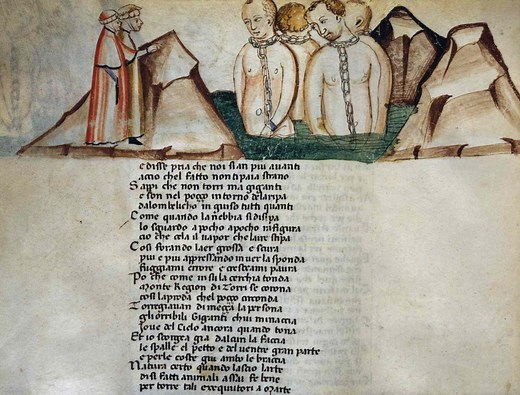 e disse pria che noi sian piu avanti
accio chel fatto non ti paia strano
Sappi che non torri ma giganti
e son nel poçço intorno dela ripa
dalombelicho in giuso tutti quanti
Come quando la nebbia si disipa
lo sguardo a pocho apocho rafigura
cio che cela il vapor che laire stipa
Cosi forando laer grossa e scura
piu e piu appressando inver la sponda
fuggiami errore e cresceami paura
Po che come in su la cerchia tonda
Monte Region di Torri se corona
cosi la proda chel poço circonda
Torregiavan di meçça la persona
gli orribili Giganti chui minaccia
Jove del Cielo ancora quando tona
Et io scorgea gia dalcun la faccia
le spalle el petto e del ventre gran parte
e per le coste giu ambo le braccia
Natura certo quando lascio larte
di si fatti animali assai fe bene
per torre tali exequitori a Marte